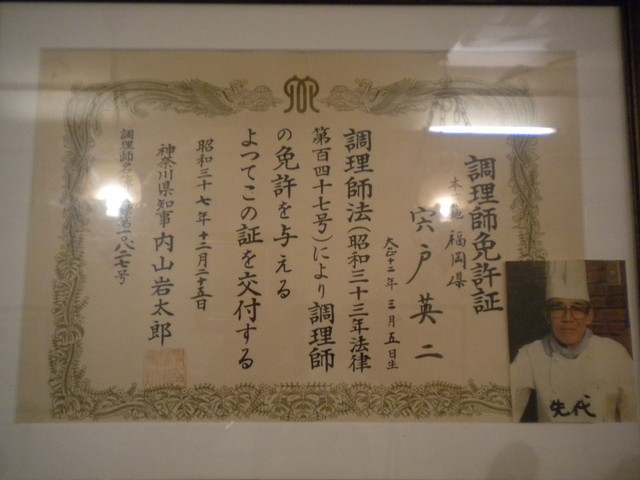 調理師免許証
本籍 福岡県
宍戸英二
大正十二年三月五日生
調理師法(昭和三十三年法律
第百四十七号)により調理師
の免許を与える
よつてこの証を交付する
昭和三十七年十二月二十五日
神奈川県知事 内山岩太郎
調理師名簿登録第一八二七号
先代